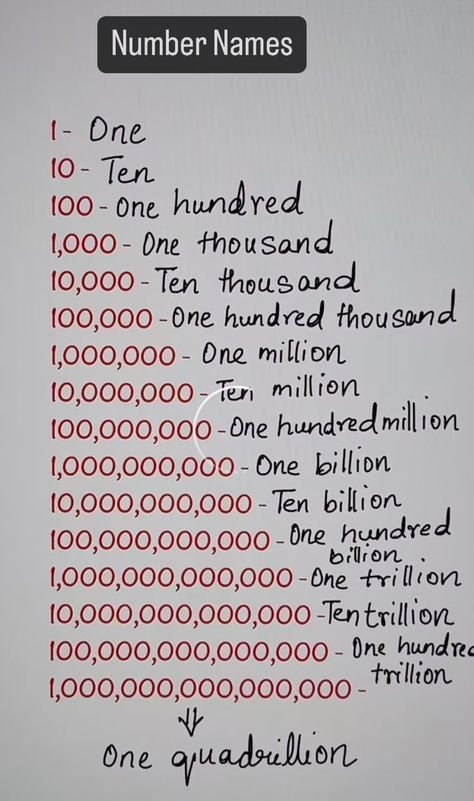 Number Names
1 - One
10 - Ten
100 - One hundred
1,000 - One thousand
10,000 - Ten thousand
100,000 - One hundred thousand
1,000,000 - One million
10,000,000 - Ten million
100,000,000 - One hundred million
1,000,000,000 - One billion
10,000,000,000 - Ten billion
100,000,000,000 - One hundred
billion
1,000,000,000,000 - One trillion
10,000,000,000,000 - Ten trillion
100,000,000,000,000 - One hundred
trillion
1,000,000,000,000,000 -
One quadrillion